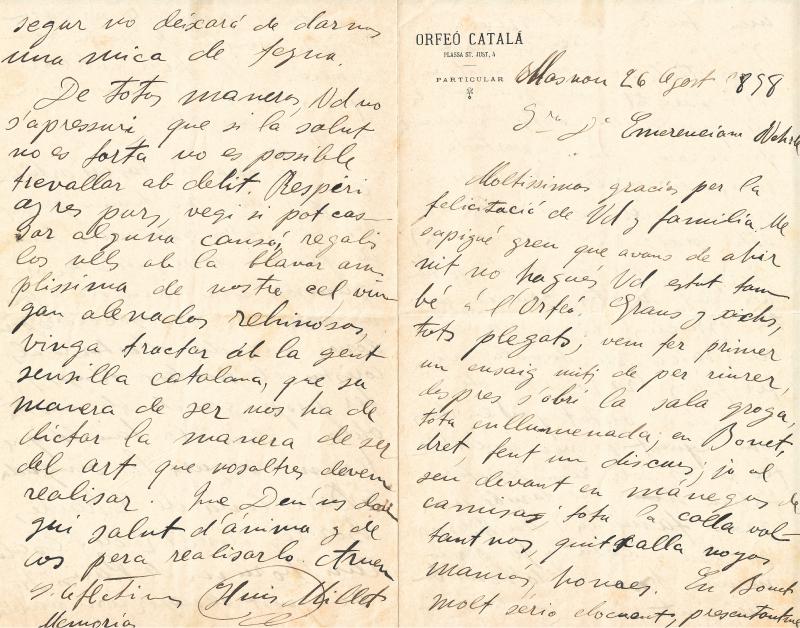 ORFEÓ CATALÁ
PLASSA ST. JUST, 4
PARTICULAR
Masnou 26 Agost 1898
Sr. Dn. Emerenciam
Moltissimas gracias per la
felicitació de Vd y familia. Me
sapigué greu que avans de ahir
nit no hagués Vd estat tam
bé á l'Orfeó. Grans y xichs,
tots plegats, vem fer primer
un ensaig mitj de per riurer,
despres s'obrí la sala groga,
tota enllumenada; en Bonet,
dret, fent un discurs; jo al
seu devant en mánegas de
camisa; tota la colla vol
tantnos, quitxalla noyas
mamás, homes. En Bonet
molt serio eloquent, presentantme
segur no deixará de darnos
una mica de fegna.
De totas maneras, Vd no
s'apressuri, que si la salut
no es forta no es possible
trevallar ab delit. Respiri
ayres purs, vegi si pot cas-
sar alguna cansó, regali
los ulls ab la blavor am
plissima de nostre cel, vin
gan alenadas rehinosas,
vinga tractar ab la gent
sensilla catalana, que sa
manera de ser nos ha de
dictar la manera de ser
del art que nosaltres devem
realisar. Que Deu'ns don
gui salut d'ánima y de
cos pera realisarlo.
s. afectíssim Lluis Millet
Memorias